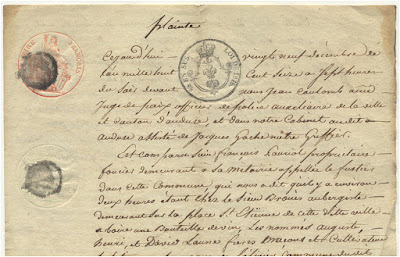 plainte
Cejourd'hui vingt neuf décembre de
l'an mille huit Cent Seize à Sept heures
du Soir devant nous Jean Coulomb ainé
Juge de paix officier de police auxiliaire de la ville
et canton d'anduze et dans notre Cabinet audit
anduze assisté de Jacques Gache notre Greffier.
Est comparu Sieur françois Lauriol propriétaire
foncier demeurant à la Metairie appellée
dans cette Commune, qui nous a dit qu'il y a environ
deux heures étant chez le Sieur aubergiste
demeurant Sur la place St Etienne de cette ville
à boire une Bouteille de vin, Les nommés auguste,
henri, et David Laune freres Maçons et